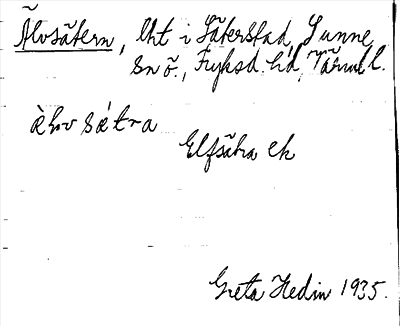 Älvsätern, lht i Säterstad, Sunne
sn ö., Fryksd. hd, Värml.
Elfsätra ek
Greta Hedin 1935.